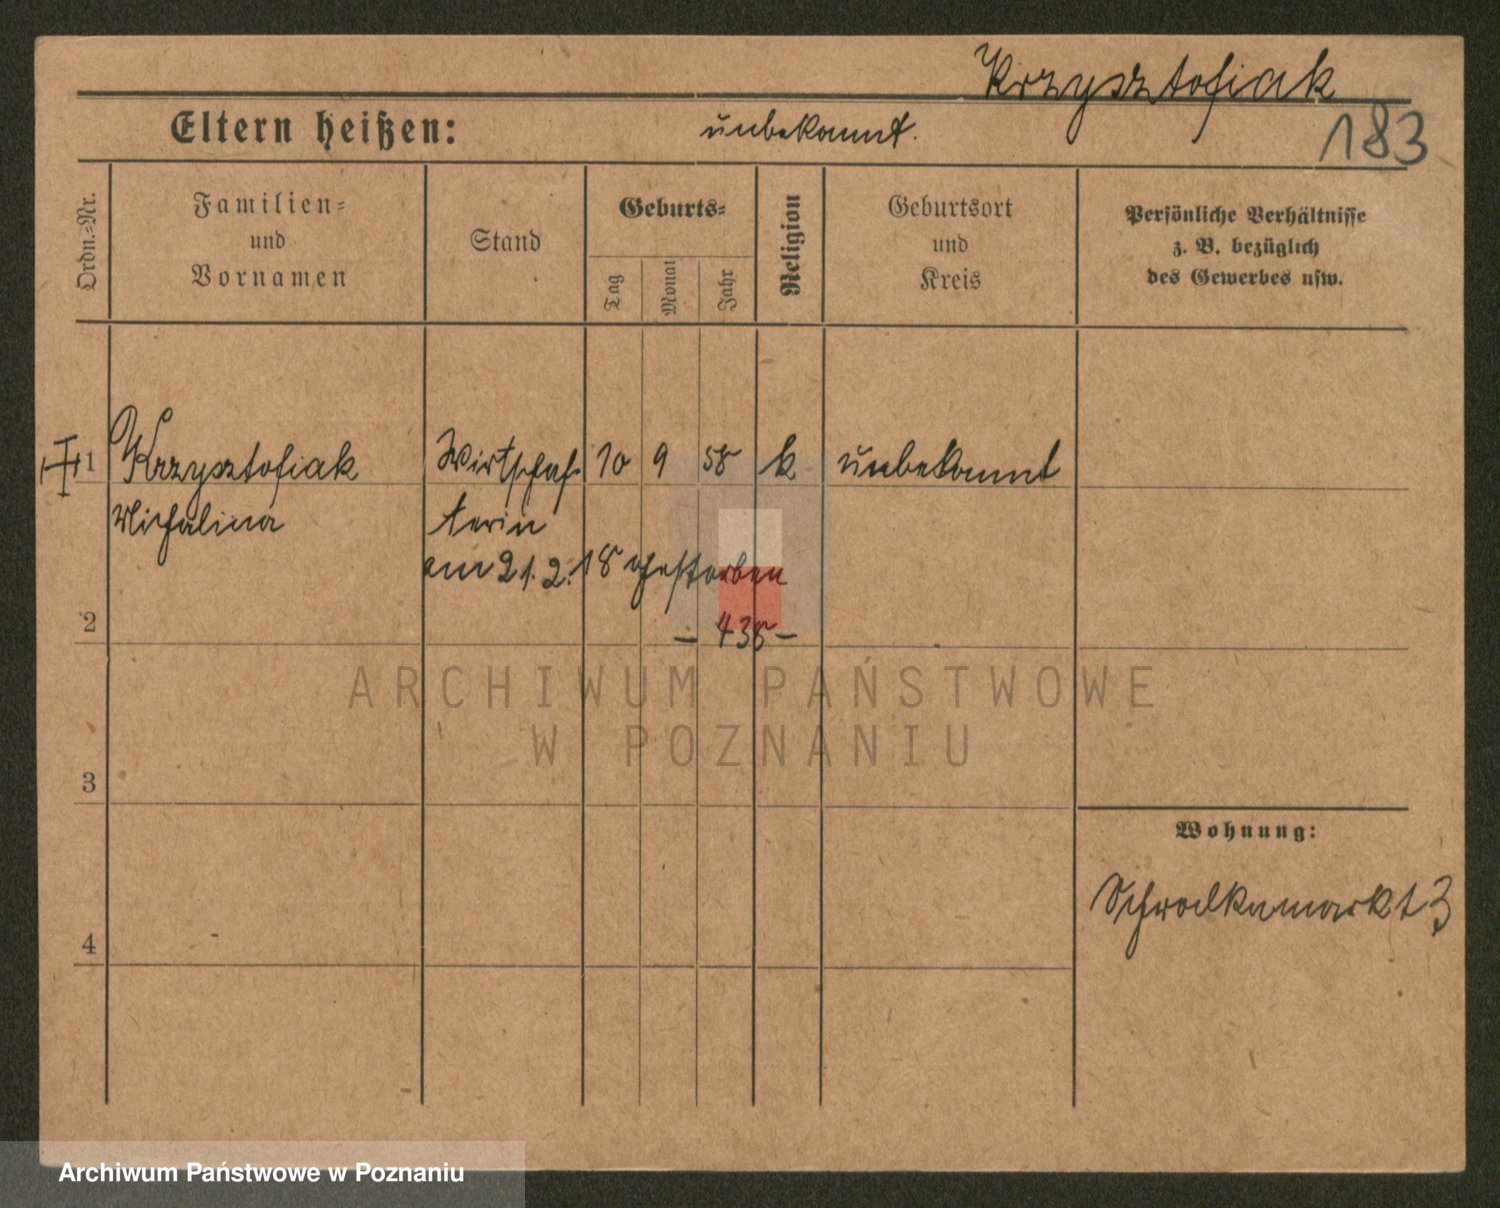 Krzysztofiak
183
Eltern heißen: unbekannt.
Ordn.=Nr.
Familien=
und
Vornamen
Stand
Geburts=
Tag
Monat
Jahr
Religion
Geburtsort
und
Kreis
Persönliche Verhältnisse
z. B. bezüglich
des Gewerbes usw.
1 Krzysztofiak Wirtschaf 10 9 58 k unbekannt
Michalina terin
am 21.2.18 gestorben
2
– 438 –
ARCHIWUM PAŃSTWOWE
W POZNANIU
3
Wohnung:
Schrodkamarkt 3
4
Archiwum Państwowe w Poznaniu